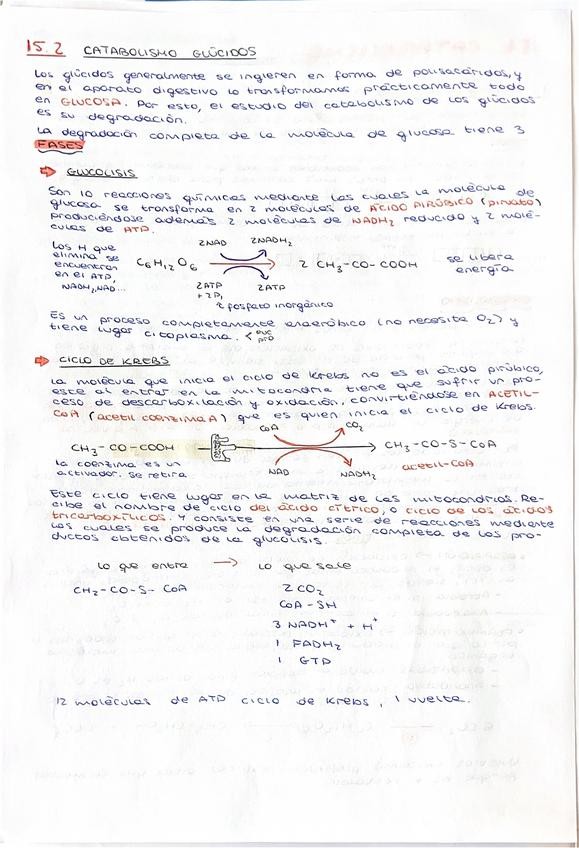 15.2 CATABOLISMO GLÚCIDOS
Los glúcidos generalmente se ingieren en forma de polisacáridos, y
en el aparato digestivo lo transformamos prácticamente todo
en GLUCOSA. Por esto, el estudio del catabolismo de los glúcidos
es su degradación.
La degradación completa de la molécula de glucosa tiene 3
FASES
GLUCOLISIS
Son 10 reacciones químicas mediante las cuales la molécula de
glucosa se transforma en 2 moléculas de ÁCIDO PIRÚBICO (pirubato)
produciéndose además 2 moléculas de NADH2 reducido y 2 molé-
culas de ATP.
Los H que
elimina se
encuentran
en el ATP,
NADH2, NAD...
2NAD 2NADH2
C6H12O6 2 CH3-CO-COOH
2ATP 2ATP
+ 2Pi
2 fosfato inorgánico
se libera
energía
Es un proceso completamente anaeróbico (no necesita O2) y
tiene lugar citoplasma. < euc
pro
CICLO DE KREBS
La molécula que inicia el ciclo de Krebs no es el ácido pirúbico,
este al entrar en la mitocondria tiene que sufrir un pro-
ceso de descarboxilación y oxidación, convirtiéndose en ACETIL-
CoA (acetil coenzima A) que es quien inicia el ciclo de Krebs.
CoA CO2
CH3-CO-COOH CH3-CO-S-CoA
NAD NADH2 acetil-CoA
La coenzima es un
activador. Se retira
Este ciclo tiene lugar en la matriz de las mitocondrias. Re-
cibe el nombre de ciclo del ácido cítrico, o ciclo de los ácidos
tricarboxílicos. Y consiste en una serie de reacciones mediante
las cuales se produce la degradación completa de los pro-
ductos obtenidos de la glucólisis.
lo que entra → lo que sale
CH2-CO-S-CoA 2 CO2
CoA-SH
3 NADH+ + H+
1 FADH2
1 GTP
12 moléculas de ATP ciclo de Krebs, 1 vuelta.